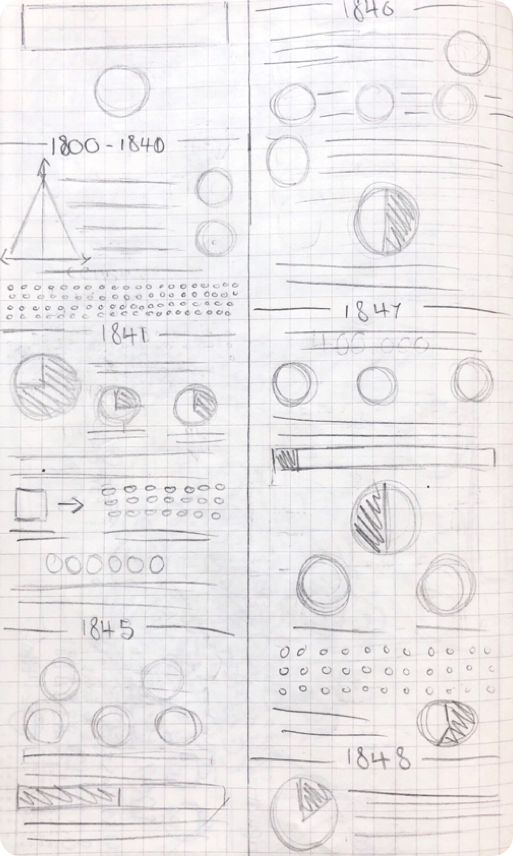 1800-1840
1841
1845
1846
1847
100 000
1848